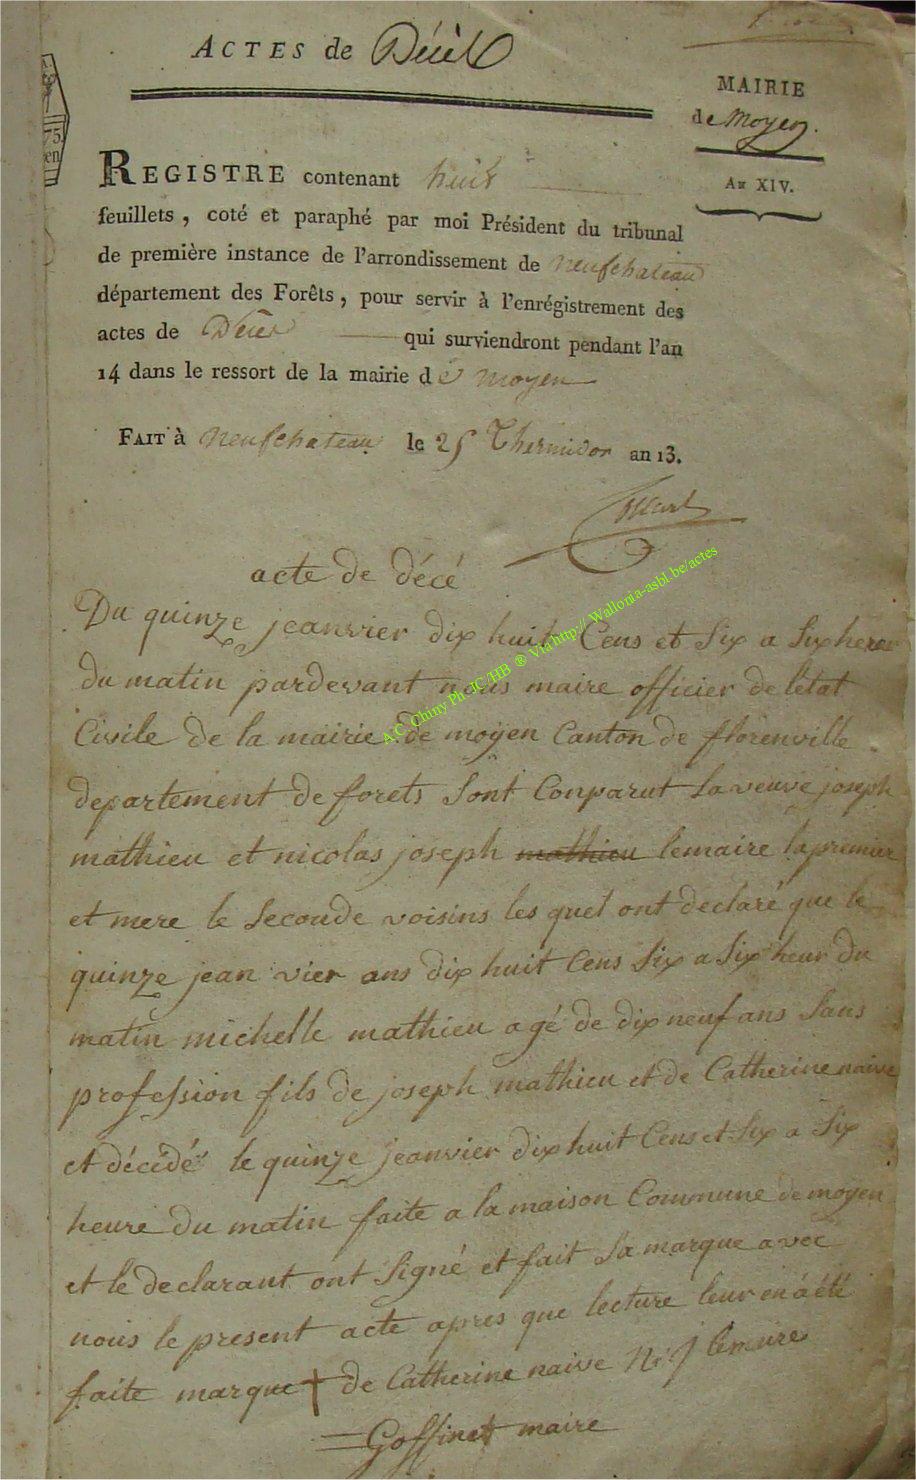 ACTES de Décès
MAIRIE
de Moyen.
AN XIV.
75
en
REGISTRE contenant huit
feuillets, coté et paraphé par moi Président du tribunal
de première instance de l'arrondissement de neufchateau
département des Forêts, pour servir à l'enrégistrement des
actes de Décès qui surviendront pendant l'an
14 dans le ressort de la mairie de moyen
FAIT à neufchateau le 25 Thermidor an 13.
acte de décé
Du quinze jeanvier dix huit Cens et Six a Six heure
du matin pardevant nous maire officier de létat
Civile de la mairie de moyen Canton de florenville
departement de forets Sont Conparut La veuve joseph
mathieu et nicolas joseph mathieu lemaire la premier
et mere le Seconde voisins les quel ont declaré que le
quinze jean vier ans dix huit Cens Six a Six heur du
matin michelle mathieu agé de dix neuf ans Sans
profession fils de joseph mathieu et de Catherine naive
et décidé le quinze jeanvier dix huit Cens et Six a Six
heure du matin faite a la maison Commune de moyen
et le declarant ont Signé et fait Sa marque avec
nous le present acte apres que lecture leur en a été
faite marque † de Catherine naive N: J lemaire
Goffinet maire
A.C. Chiny Ph. JC/HB ® Via http://Wallonia-asbl.be/actes